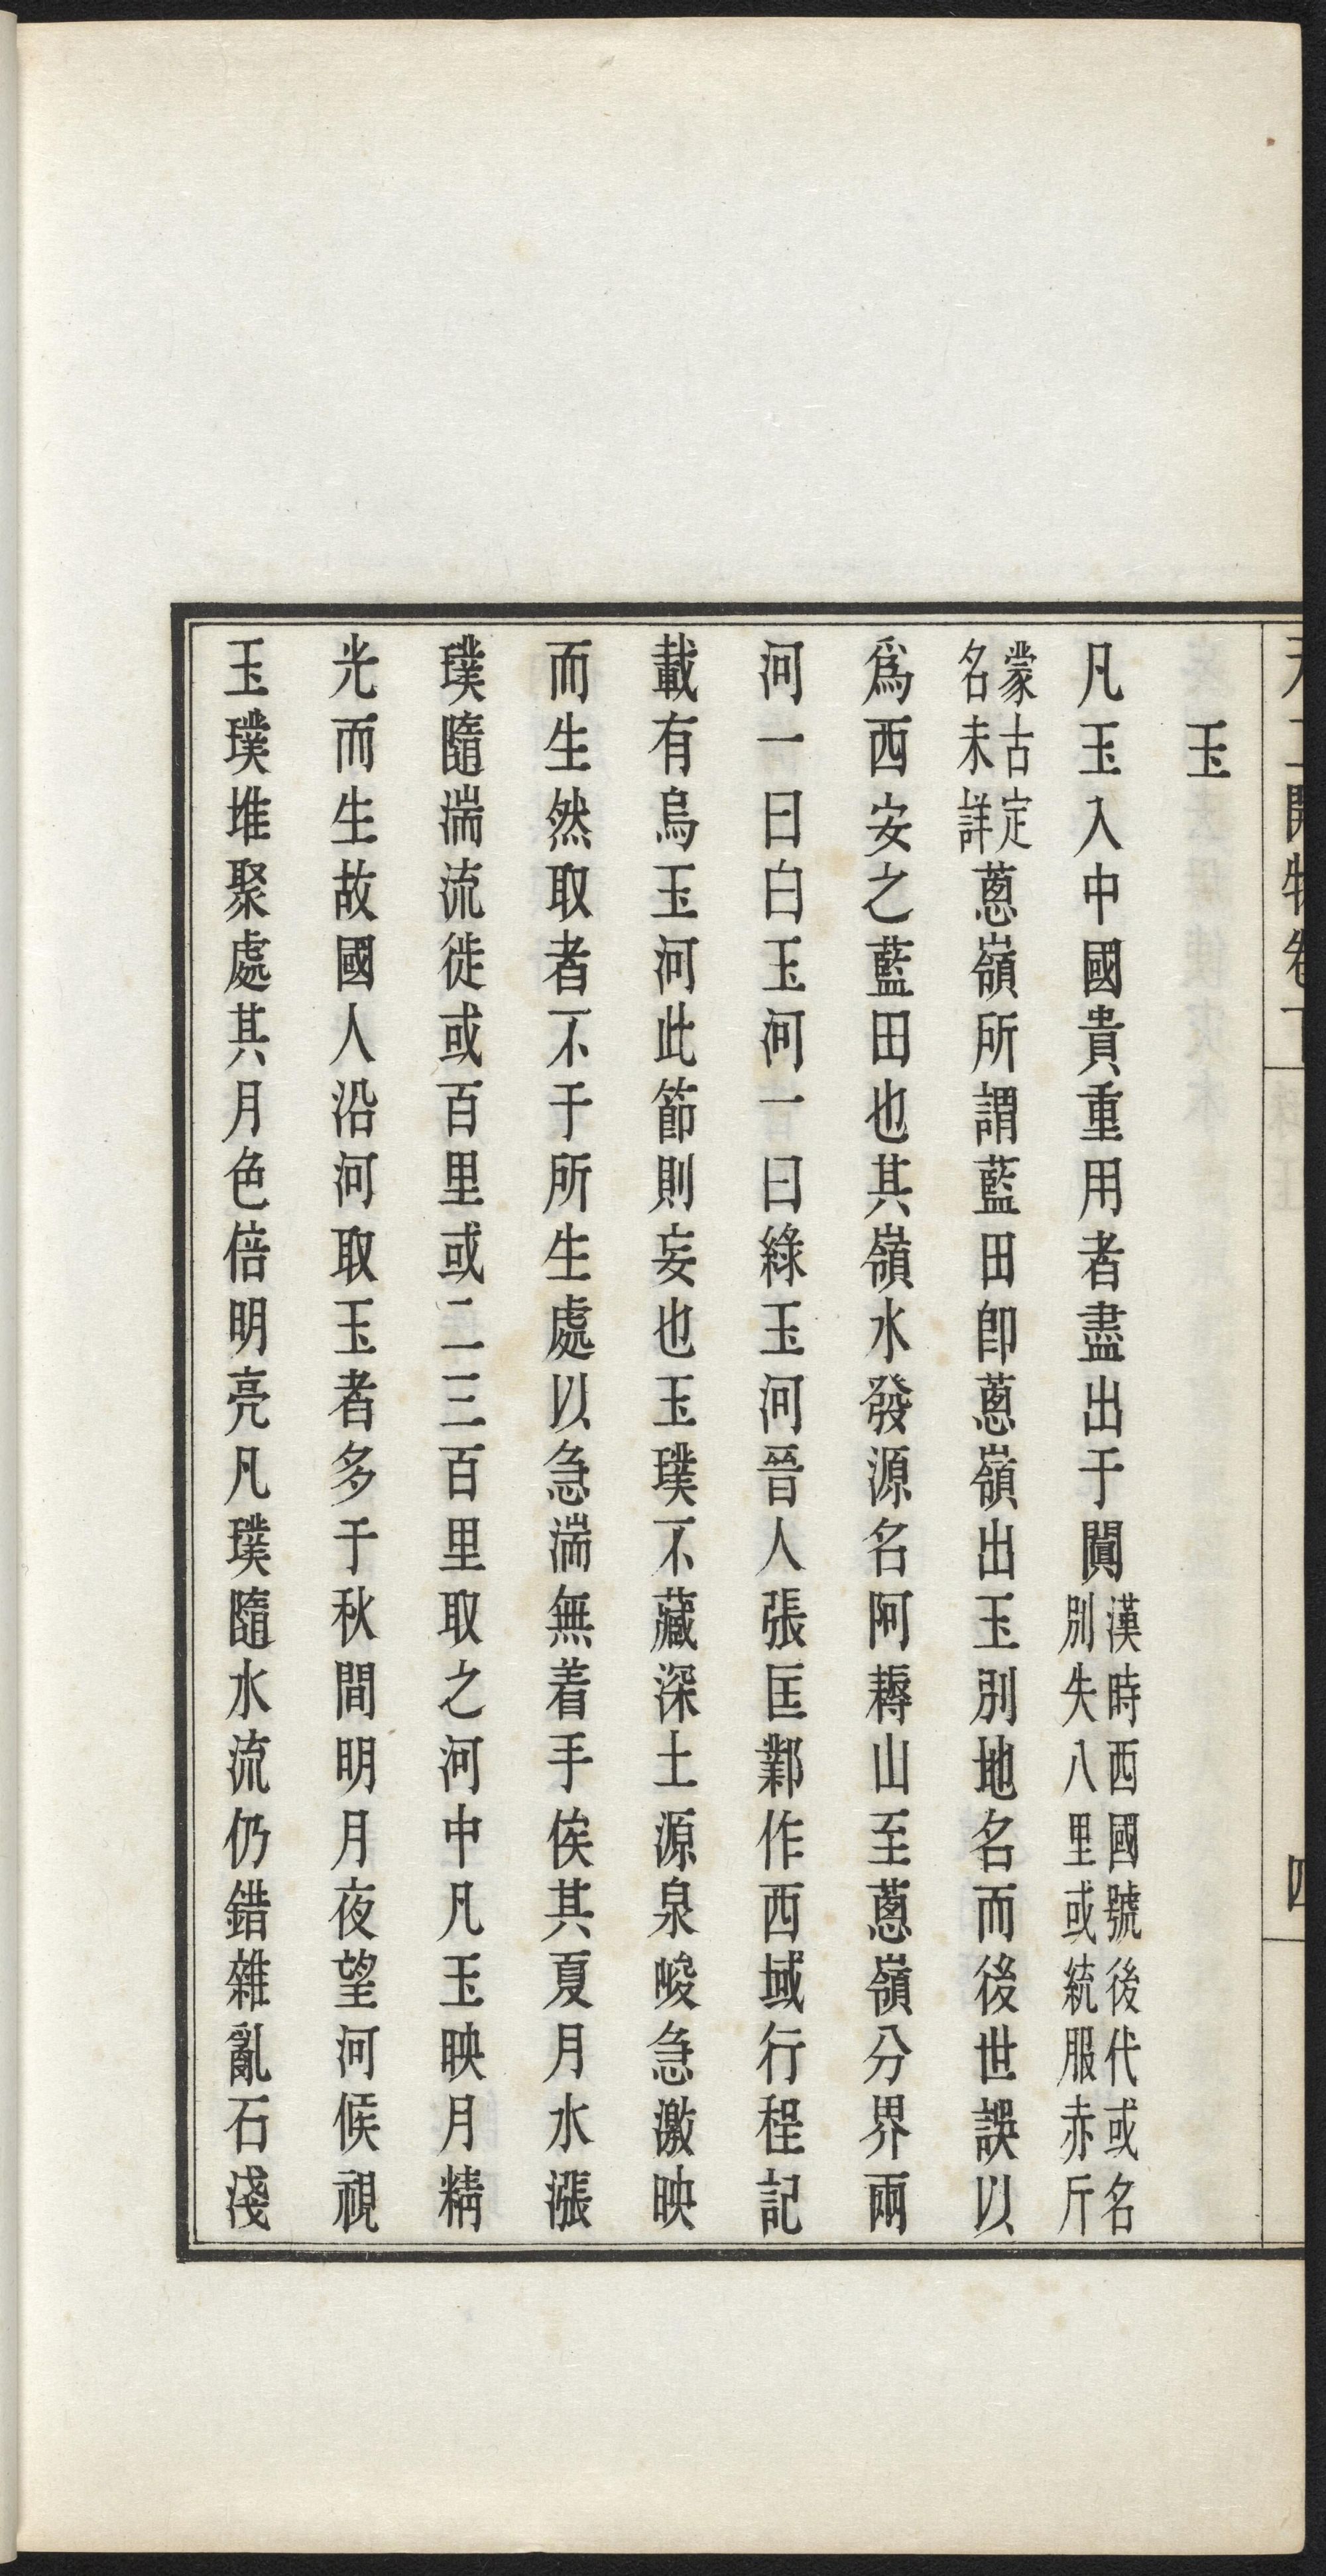 天工開物卷下
四
玉
凡玉入中國貴重用者盡出于闐漢時西國號後代或名別失八里或統服赤斤
蒙古定名未詳蔥嶺所謂藍田即蔥嶺出玉別地名而後世誤以
爲西安之藍田也其嶺水發源名阿耨山至蔥嶺分界兩
河一曰白玉河一曰綠玉河晉人張匡鄴作西域行程記
載有烏玉河此節則妄也玉璞不藏深土源泉峻急激映
而生然取者不于所生處以急湍無着手俟其夏月水漲
璞隨湍流徙或百里或二三百里取之河中凡玉映月精
光而生故國人沿河取玉者多于秋間明月夜望河候視
玉璞堆聚處其月色倍明亮凡璞隨水流仍錯雜亂石淺